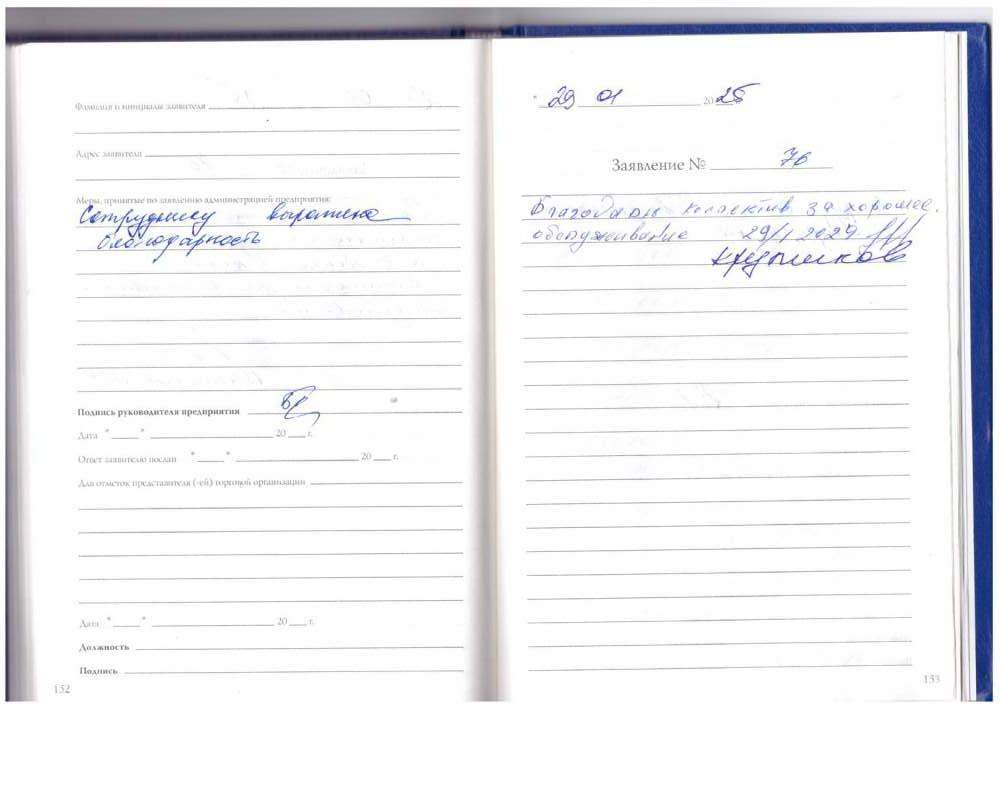 Фамилия и инициалы заявителя
Адрес заявителя
Меры, принятые по заявлению администрацией предприятия:
Сотруднику выражена
благодарность
Подпись руководителя предприятия
Дата " " 20 г.
Ответ заявителю послан " " 20 г.
Для отметок представителя (-ей) торговой организации
Дата " " 20 г.
Должность
Подпись
152
" 29 01 2025
Заявление № 76
коллектив за хорошее
обслуживание 29/1 2024
153